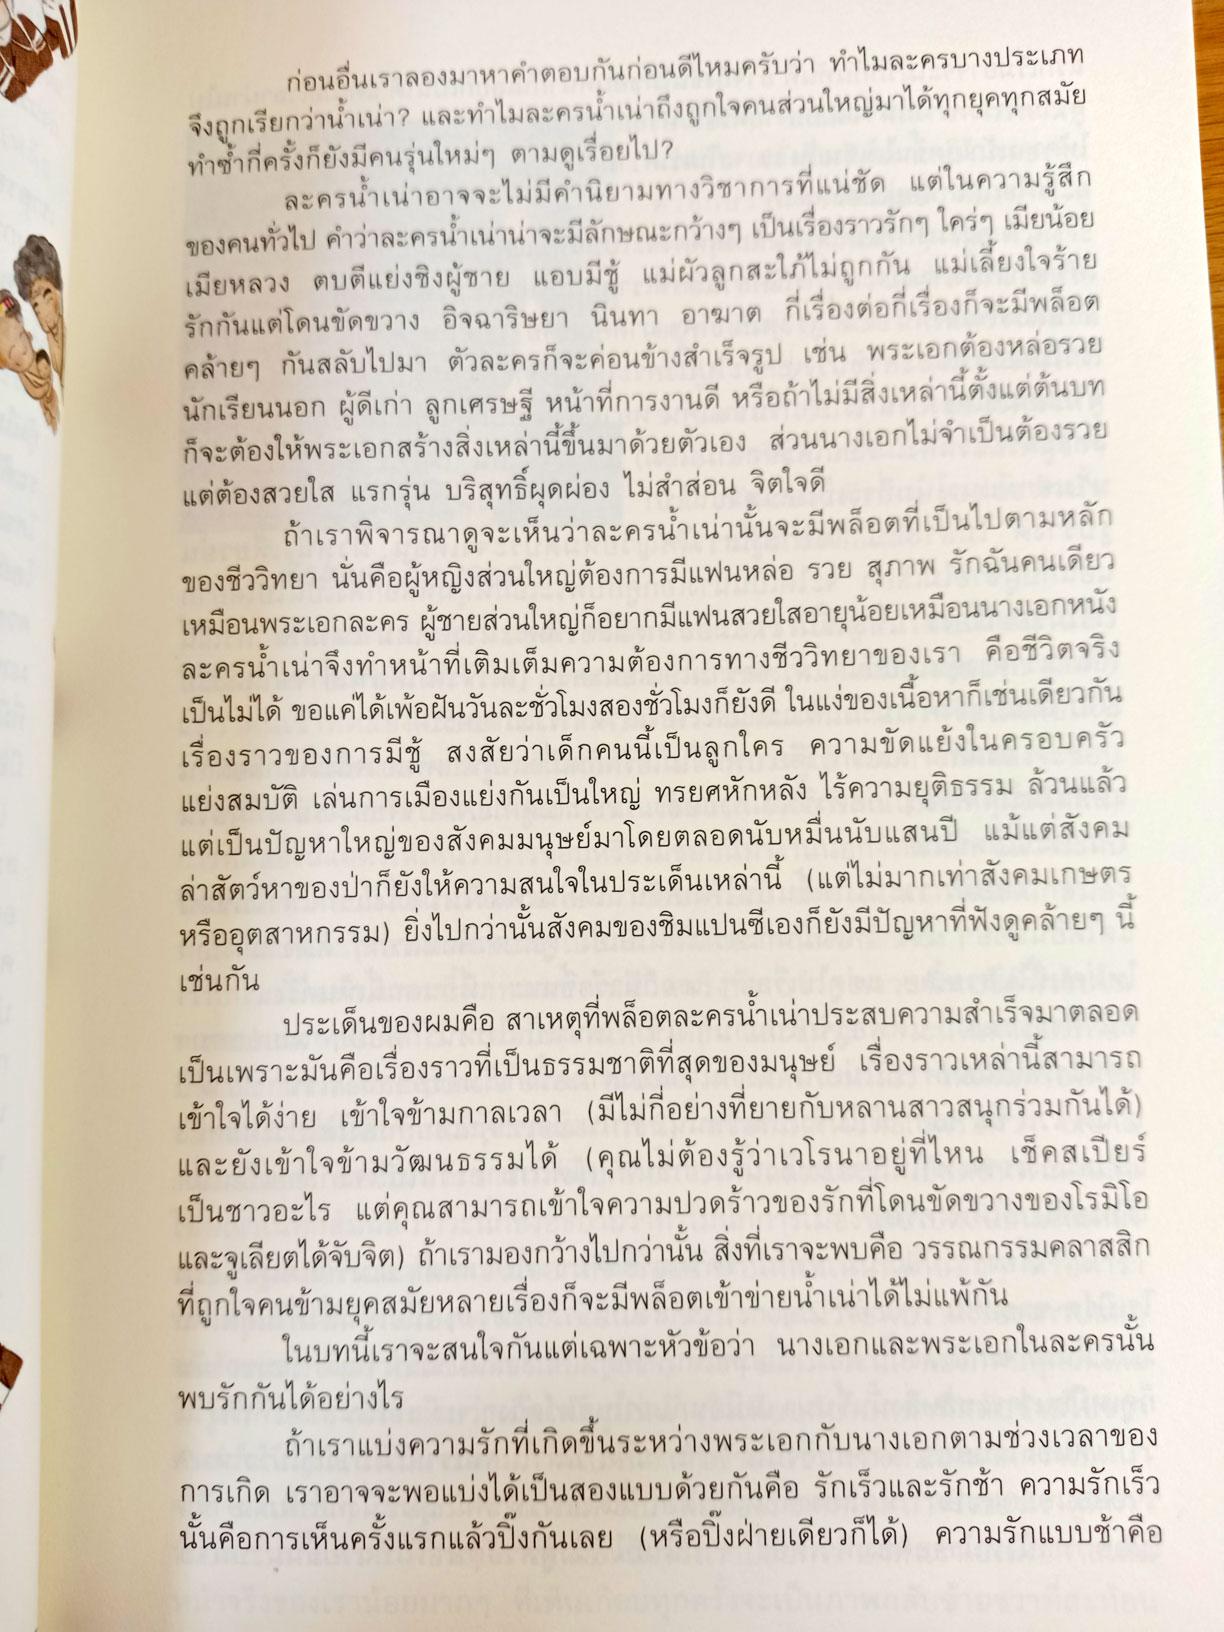 ก่อนอื่นเราลองมาหาคำตอบกันก่อนดีไหมครับว่า ทำไมละครบางประเภท
จึงถูกเรียกว่าน้ำเน่า? และทำไมละครน้ำเน่าถึงถูกใจคนส่วนใหญ่มาได้ทุกยุคทุกสมัย
ทำซ้ำกี่ครั้งก็ยังมีคนรุ่นใหม่ๆ ตามดูเรื่อยไป?
ละครน้ำเน่าอาจจะไม่มีคำนิยามทางวิชาการที่แน่ชัด แต่ในความรู้สึก
ของคนทั่วไป คำว่าละครน้ำเน่าน่าจะมีลักษณะกว้างๆ เป็นเรื่องราวรักๆ ใคร่ๆ เมียน้อย
เมียหลวง ตบตีแย่งชิงผู้ชาย แอบมีชู้ แม่ผัวลูกสะใภ้ไม่ถูกกัน แม่เลี้ยงใจร้าย
รักกันแต่โดนขัดขวาง อิจฉาริษยา นินทา อาฆาต กี่เรื่องต่อกี่เรื่องก็จะมีพล็อต
คล้ายๆ กันสลับไปมา ตัวละครก็จะค่อนข้างสำเร็จรูป เช่น พระเอกต้องหล่อรวย
นักเรียนนอก ผู้ดีเก่า ลูกเศรษฐี หน้าที่การงานดี หรือถ้าไม่มีสิ่งเหล่านี้ตั้งแต่ต้นบท
ก็จะต้องให้พระเอกสร้างสิ่งเหล่านี้ขึ้นมาด้วยตัวเอง ส่วนนางเอกไม่จำเป็นต้องรวย
แต่ต้องสวยใส แรกรุ่น บริสุทธิ์ผุดผ่อง ไม่สำส่อน จิตใจดี
ถ้าเราพิจารณาดูจะเห็นว่าละครน้ำเน่านั้นจะมีพล็อตที่เป็นไปตามหลัก
ของชีววิทยา นั่นคือผู้หญิงส่วนใหญ่ต้องการมีแฟนหล่อ รวย สุภาพ รักฉันคนเดียว
เหมือนพระเอกละคร ผู้ชายส่วนใหญ่ก็อยากมีแฟนสวยใสอายุน้อยเหมือนนางเอกหนัง
ละครน้ำเน่าจึงทำหน้าที่เติมเต็มความต้องการทางชีววิทยาของเรา คือชีวิตจริง
เป็นไม่ได้ ขอแค่ได้เพ้อฝันวันละชั่วโมงสองชั่วโมงก็ยังดี ในแง่ของเนื้อหาก็เช่นเดียวกัน
เรื่องราวของการมีชู้ สงสัยว่าเด็กคนนี้เป็นลูกใคร ความขัดแย้งในครอบครัว
แย่งสมบัติ เล่นการเมืองแย่งกันเป็นใหญ่ ทรยศหักหลัง ไร้ความยุติธรรม ล้วนแล้ว
แต่เป็นปัญหาใหญ่ของสังคมมนุษย์มาโดยตลอดนับหมื่นนับแสนปี แม้แต่สังคม
ล่าสัตว์หาของป่าก็ยังให้ความสนใจในประเด็นเหล่านี้ (แต่ไม่มากเท่าสังคมเกษตร
หรืออุตสาหกรรม) ยิ่งไปกว่านั้นสังคมของชิมแปนซีเองก็ยังมีปัญหาที่ฟังดูคล้ายๆ นี้
เช่นกัน
ประเด็นของผมคือ สาเหตุที่พล็อตละครน้ำเน่าประสบความสำเร็จมาตลอด
เป็นเพราะมันคือเรื่องราวที่เป็นธรรมชาติที่สุดของมนุษย์ เรื่องราวเหล่านี้สามารถ
เข้าใจได้ง่าย เข้าใจข้ามกาลเวลา (มีไม่กี่อย่างที่ยายกับหลานสาวสนุกร่วมกันได้)
และยังเข้าใจข้ามวัฒนธรรมได้ (คุณไม่ต้องรู้ว่าเวโรนาอยู่ที่ไหน เช็คสเปียร์
เป็นชาวอะไร แต่คุณสามารถเข้าใจความปวดร้าวของรักที่โดนขัดขวางของโรมิโอ
และจูเลียตได้จับจิต) ถ้าเรามองกว้างไปกว่านั้น สิ่งที่เราจะพบคือ วรรณกรรมคลาสสิก
ที่ถูกใจคนข้ามยุคสมัยหลายเรื่องก็จะมีพล็อตเข้าข่ายน้ำเน่าได้ไม่แพ้กัน
ในบทนี้เราจะสนใจกันแต่เฉพาะหัวข้อว่า นางเอกและพระเอกในละครนั้น
พบรักกันได้อย่างไร
ถ้าเราแบ่งความรักที่เกิดขึ้นระหว่างพระเอกกับนางเอกตามช่วงเวลาของ
การเกิด เราอาจจะพอแบ่งได้เป็นสองแบบด้วยกันคือ รักเร็วและรักช้า ความรักเร็ว
นั้นคือการเห็นครั้งแรกแล้วปิ๊งกันเลย (หรือปิ๊งฝ่ายเดียวก็ได้) ความรักแบบช้าคือ